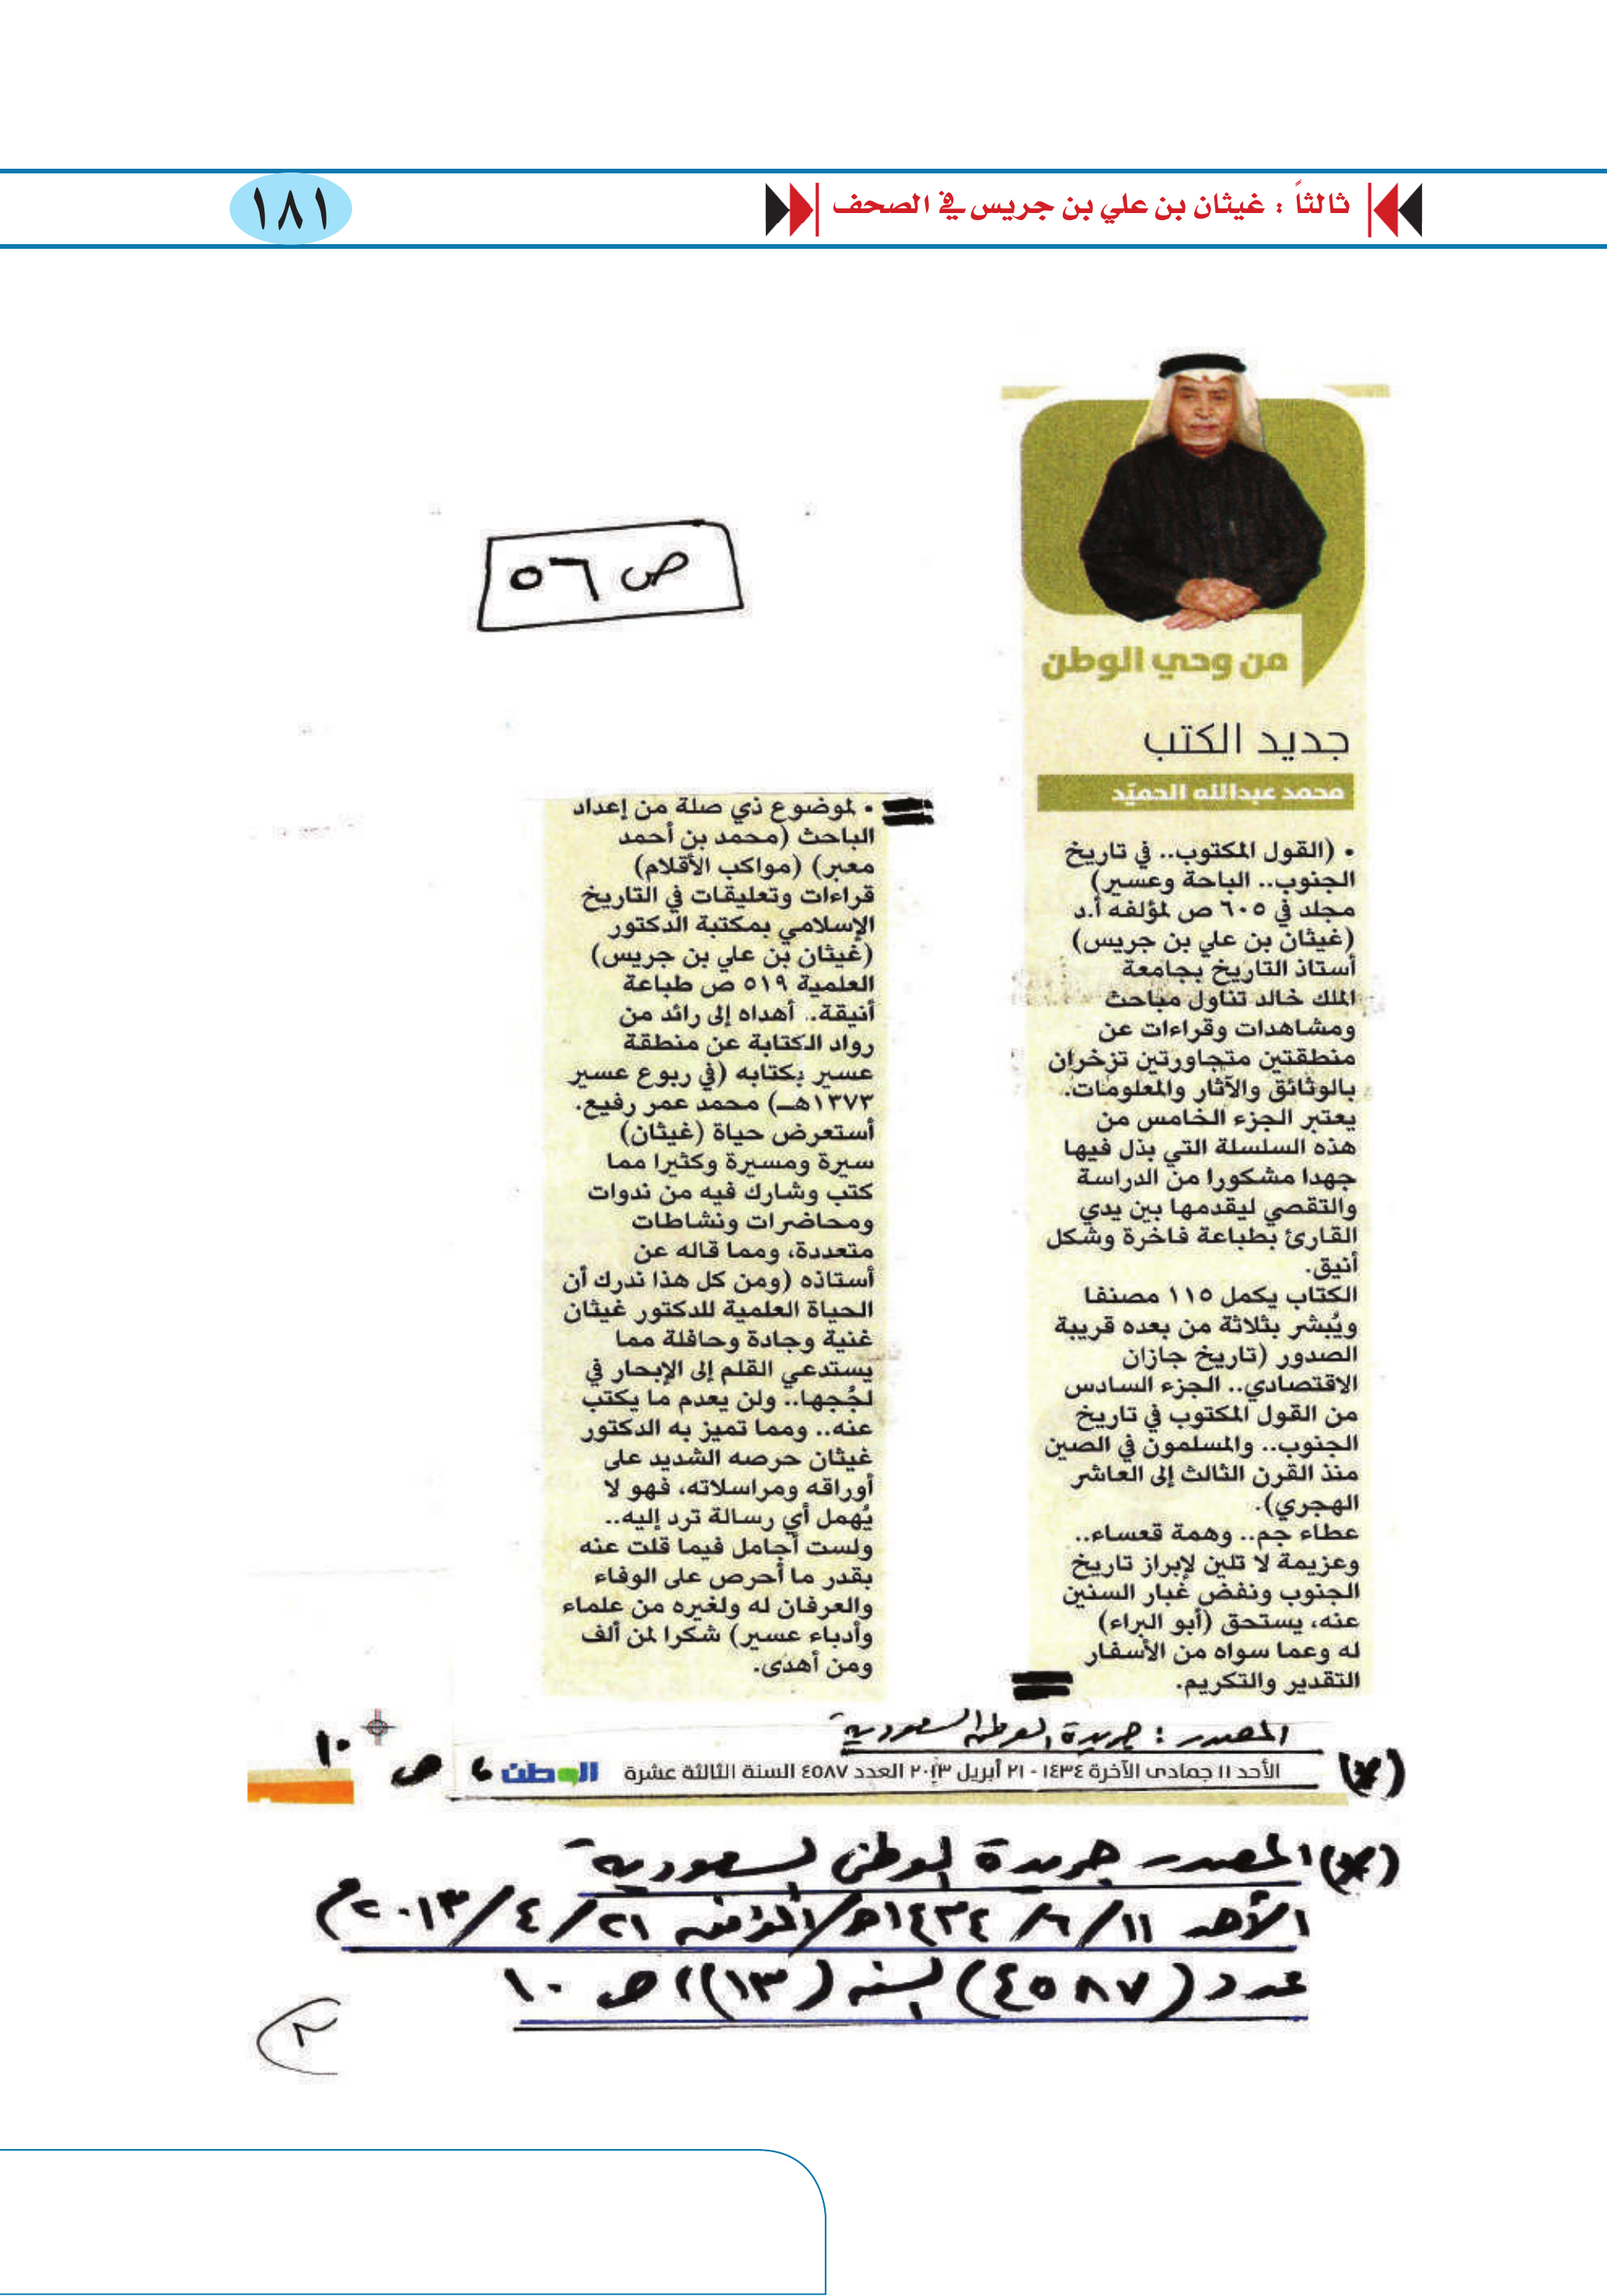 ثالثاً : غيثان بن علي بن جريس في الصحف
١٨١
ص ٥٦
من وحي الوطن
جديد الكتب
محمد عبدالله الحميّد
• (القول المكتوب.. في تاريخ
الجنوب.. الباحة وعسير)
مجلد في ٦٠٥ ص لمؤلفه أ.د
(غيثان بن علي بن جريس)
أستاذ التاريخ بجامعة
الملك خالد تناول مباحث
ومشاهدات وقراءات عن
منطقتين متجاورتين تزخران
بالوثائق والآثار والمعلومات.
يعتبر الجزء الخامس من
هذه السلسلة التي بذل فيها
جهدا مشكورا من الدراسة
والتقصي ليقدمها بين يدي
القارئ بطباعة فاخرة وشكل
أنيق.
الكتاب يكمل ١١٥ مصنفا
ويُبشر بثلاثة من بعده قريبة
الصدور (تاريخ جازان
الاقتصادي.. الجزء السادس
من القول المكتوب في تاريخ
الجنوب.. والمسلمون في الصين
منذ القرن الثالث إلى العاشر
الهجري).
عطاء جم.. وهمة قعساء..
وعزيمة لا تلين لإبراز تاريخ
الجنوب ونفض غبار السنين
عنه، يستحق (أبو البراء)
له وعما سواه من الأسفار
التقدير والتكريم.
• لموضوع ذي صلة من إعداد
الباحث (محمد بن أحمد
معبر) (مواكب الأقلام)
قراءات وتعليقات في التاريخ
الإسلامي بمكتبة الدكتور
(غيثان بن علي بن جريس)
العلمية ٥١٩ ص طباعة
أنيقة.. أهداه إلى رائد من
رواد الكتابة عن منطقة
عسير بكتابه (في ربوع عسير
١٣٧٣هـ) محمد عمر رفيع.
أستعرض حياة (غيثان)
سيرة ومسيرة وكثيرا مما
كتب وشارك فيه من ندوات
ومحاضرات ونشاطات
متعددة، ومما قاله عن
أستاذه (ومن كل هذا ندرك أن
الحياة العلمية للدكتور غيثان
غنية وجادة وحافلة مما
يستدعي القلم إلى الإبحار في
لجُجها.. ولن يعدم ما يكتب
عنه.. ومما تميز به الدكتور
غيثان حرصه الشديد على
أوراقه ومراسلاته، فهو لا
يُهمل أي رسالة ترد إليه..
ولست أجامل فيما قلت عنه
بقدر ما أحرص على الوفاء
والعرفان له ولغيره من علماء
وأدباء عسير) شكرا لمن ألف
ومن أهدى.
المصدر : جريدة الوطن السعودية
(*) الأحد ١١ جمادى الآخرة ١٤٣٤ - ٢١ أبريل ٢٠١٣ العدد ٤٥٨٧ السنة الثالثة عشرة الوطن ، ص ١٠
(*) المصدر جريدة الوطن السعودية
الأحد ١١/ ٦/ ١٤٣٤هـ/الموافق ٢١/ ٤/ ٢٠١٣م
عدد (٤٥٨٧) السنة (١٣)، ص ١٠
٢